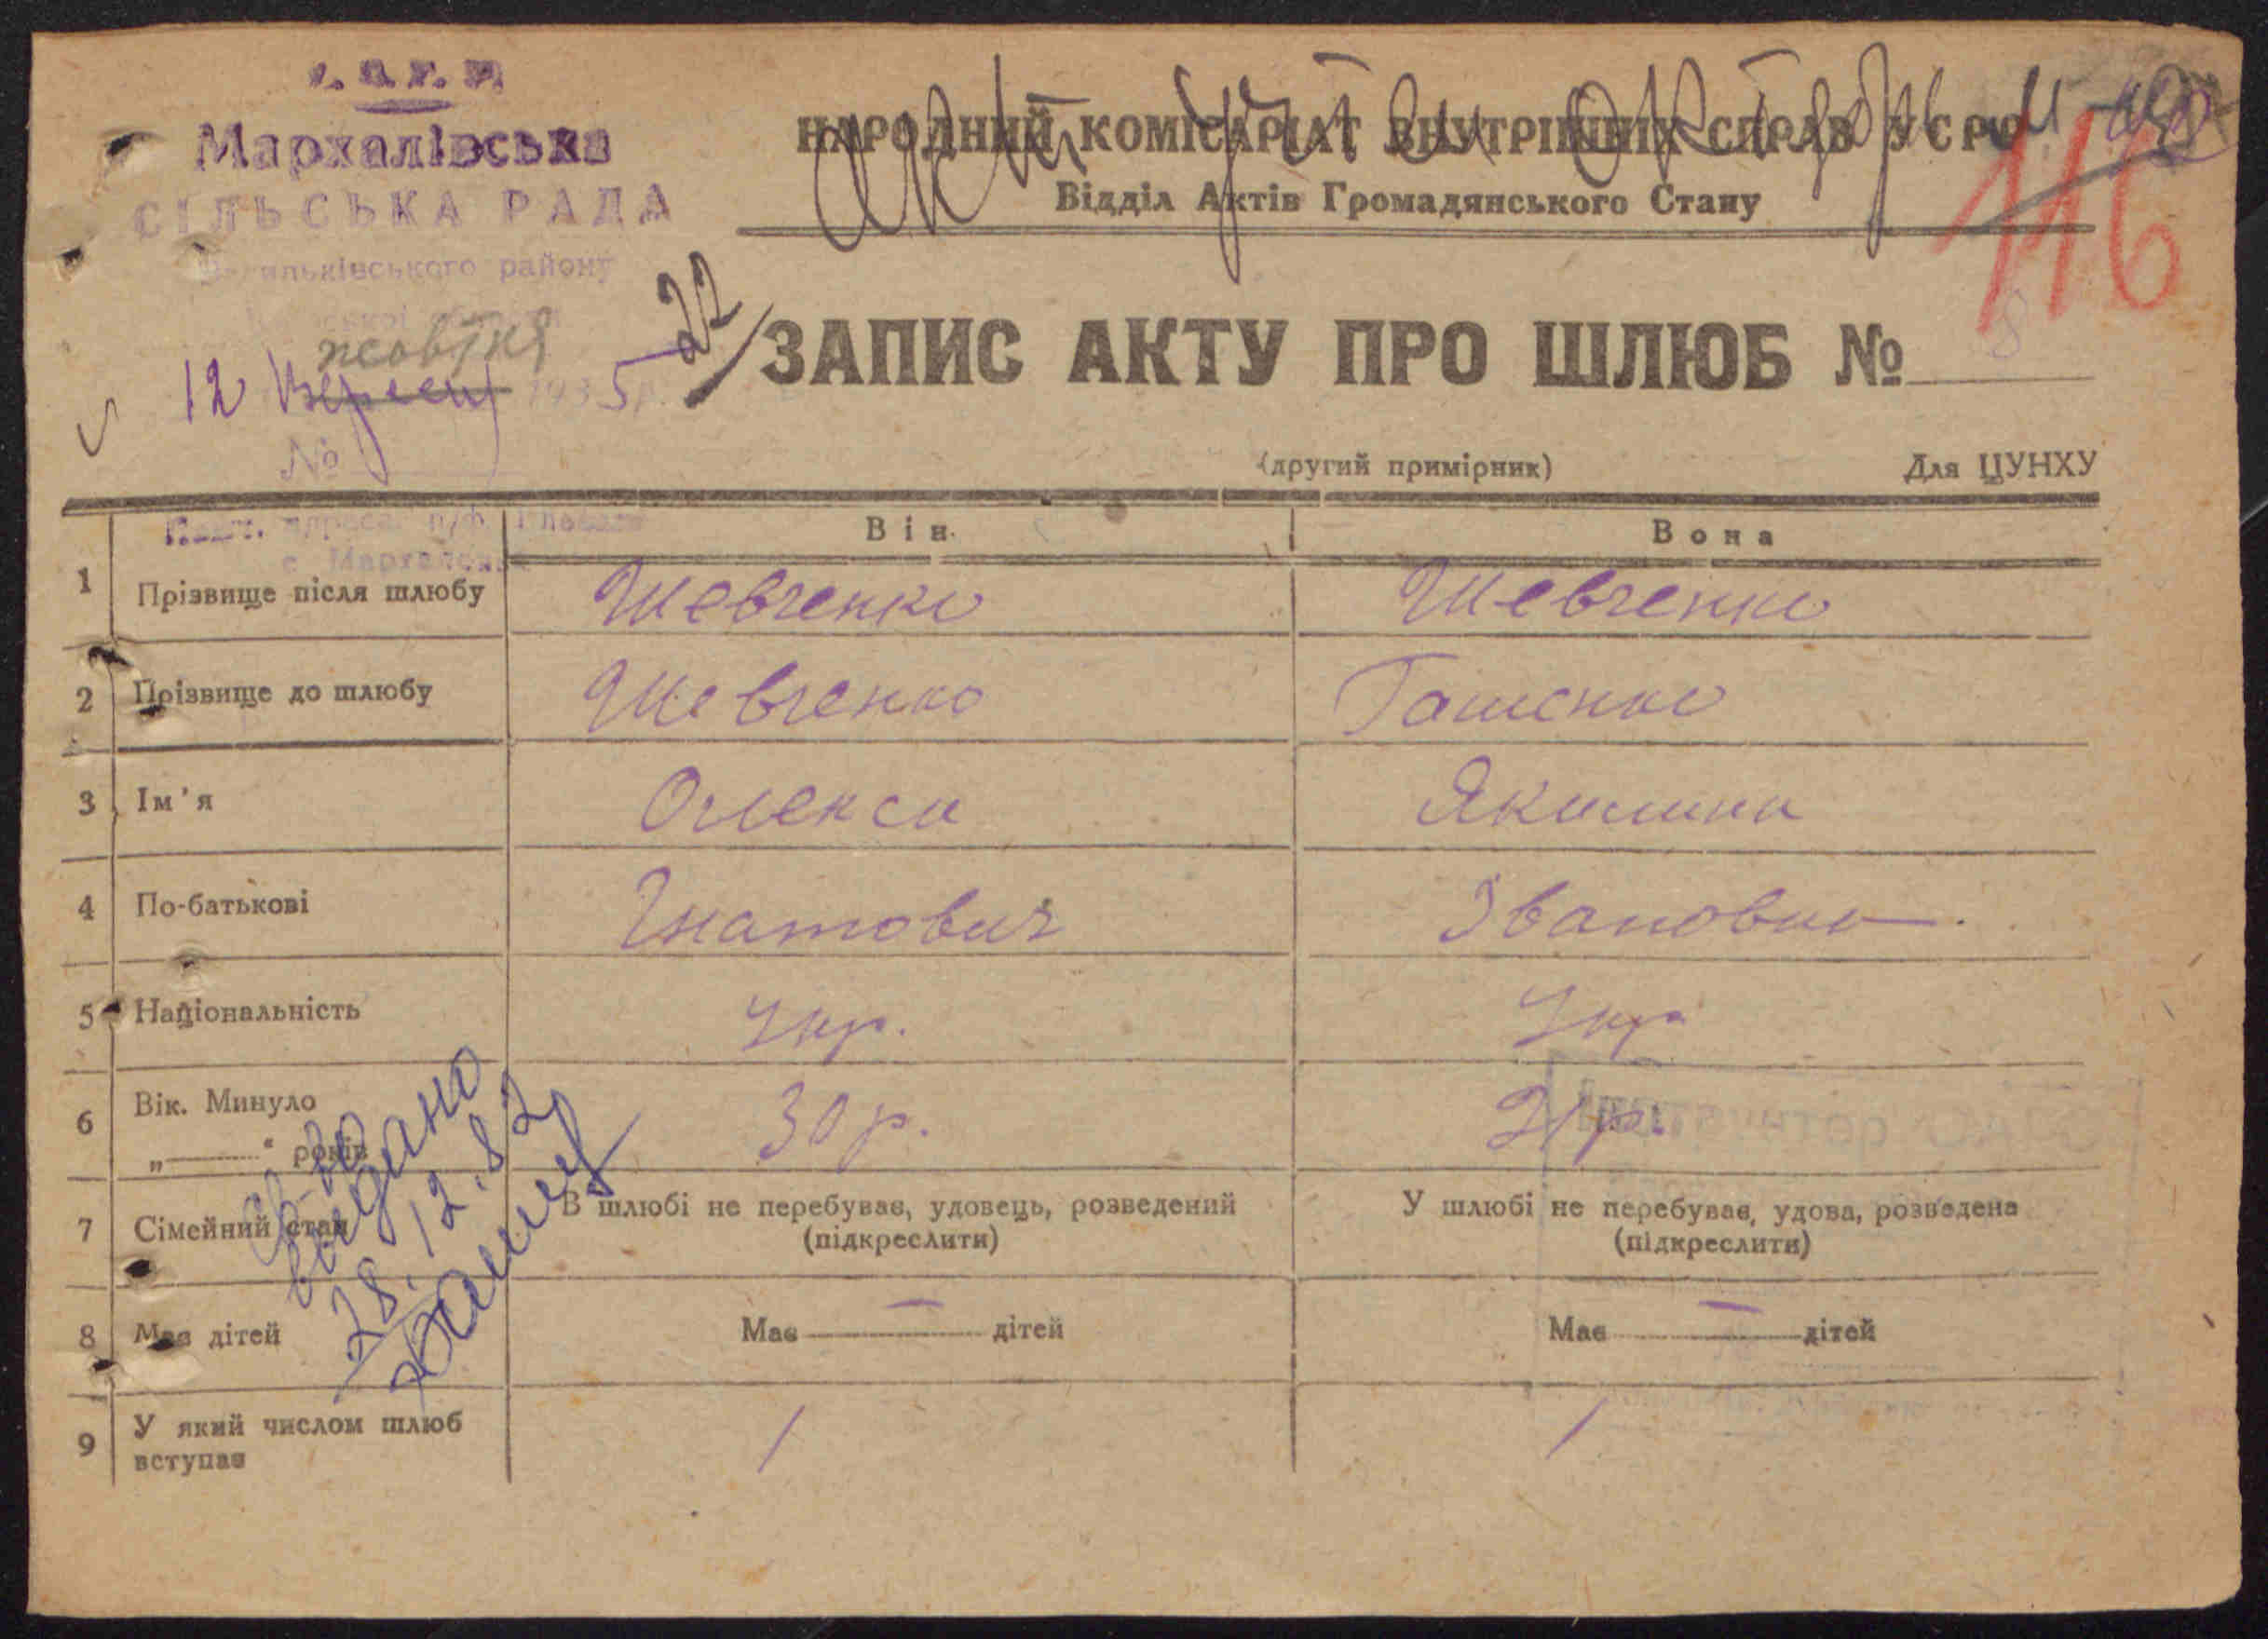 У.С.Р.Р.
Мархалівська
СІЛЬСЬКА РАДА
Васильківського району
Київської області
жовтня
12 Вересня 1935 р.
№
Пошт. адреса: п/ф
с. Мархалівка
НАРОДНИЙ КОМІСАРІАТ ВНУТРІШНІХ СПРАВ УСРР
Відділ Актів Громадянського Стану
116
22
ЗАПИС АКТУ ПРО ШЛЮБ № 8
(другий примірник) Для ЦУНХУ
Він Вона
1 Прізвище після шлюбу Шевченко Шевченко
2 Прізвище до шлюбу Шевченко
3 Ім'я Олекса Якилина
4 По-батькові Гнатович Івановна
5 Національність Укр. Укр
6 Вік. Минуло
„——“ років 30 р. 21 р.
7 Сімейний стан В шлюбі не перебуває, удовець, розведений (підкреслити) У шлюбі не перебуває, удова, розведена (підкреслити)
8 Має дітей Має — дітей Має — дітей
9 У який числом шлюб
вступає 1 1
св-во
выдано
28.12.82